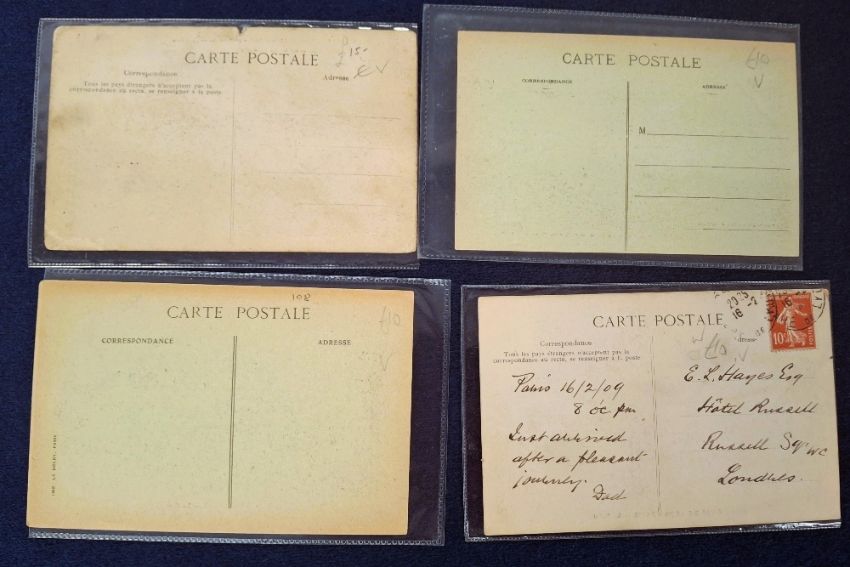 CARTE POSTALE
15-
Correspondance
Adresse
V
Tous les pays étrangers n'acceptent pas la
correspondance au recto, se renseigner à la poste
CARTE POSTALE
£10
V
CORRESPONDANCE
ADRESSE
M
108
CARTE POSTALE
£10
V
CORRESPONDANCE
ADRESSE
CARTE POSTALE
20 35
16-2
10
Correspondance
£10
V
Tous les pays étrangers n'acceptent pas la
correspondance au recto, se renseigner à la poste
Paris 16/2/09
8 oc pm
Just arrived
after a pleasant
journey.
Dad
E. L. Hayes Esq
Hôtel Russell
Russell Sqr WC
Londres.